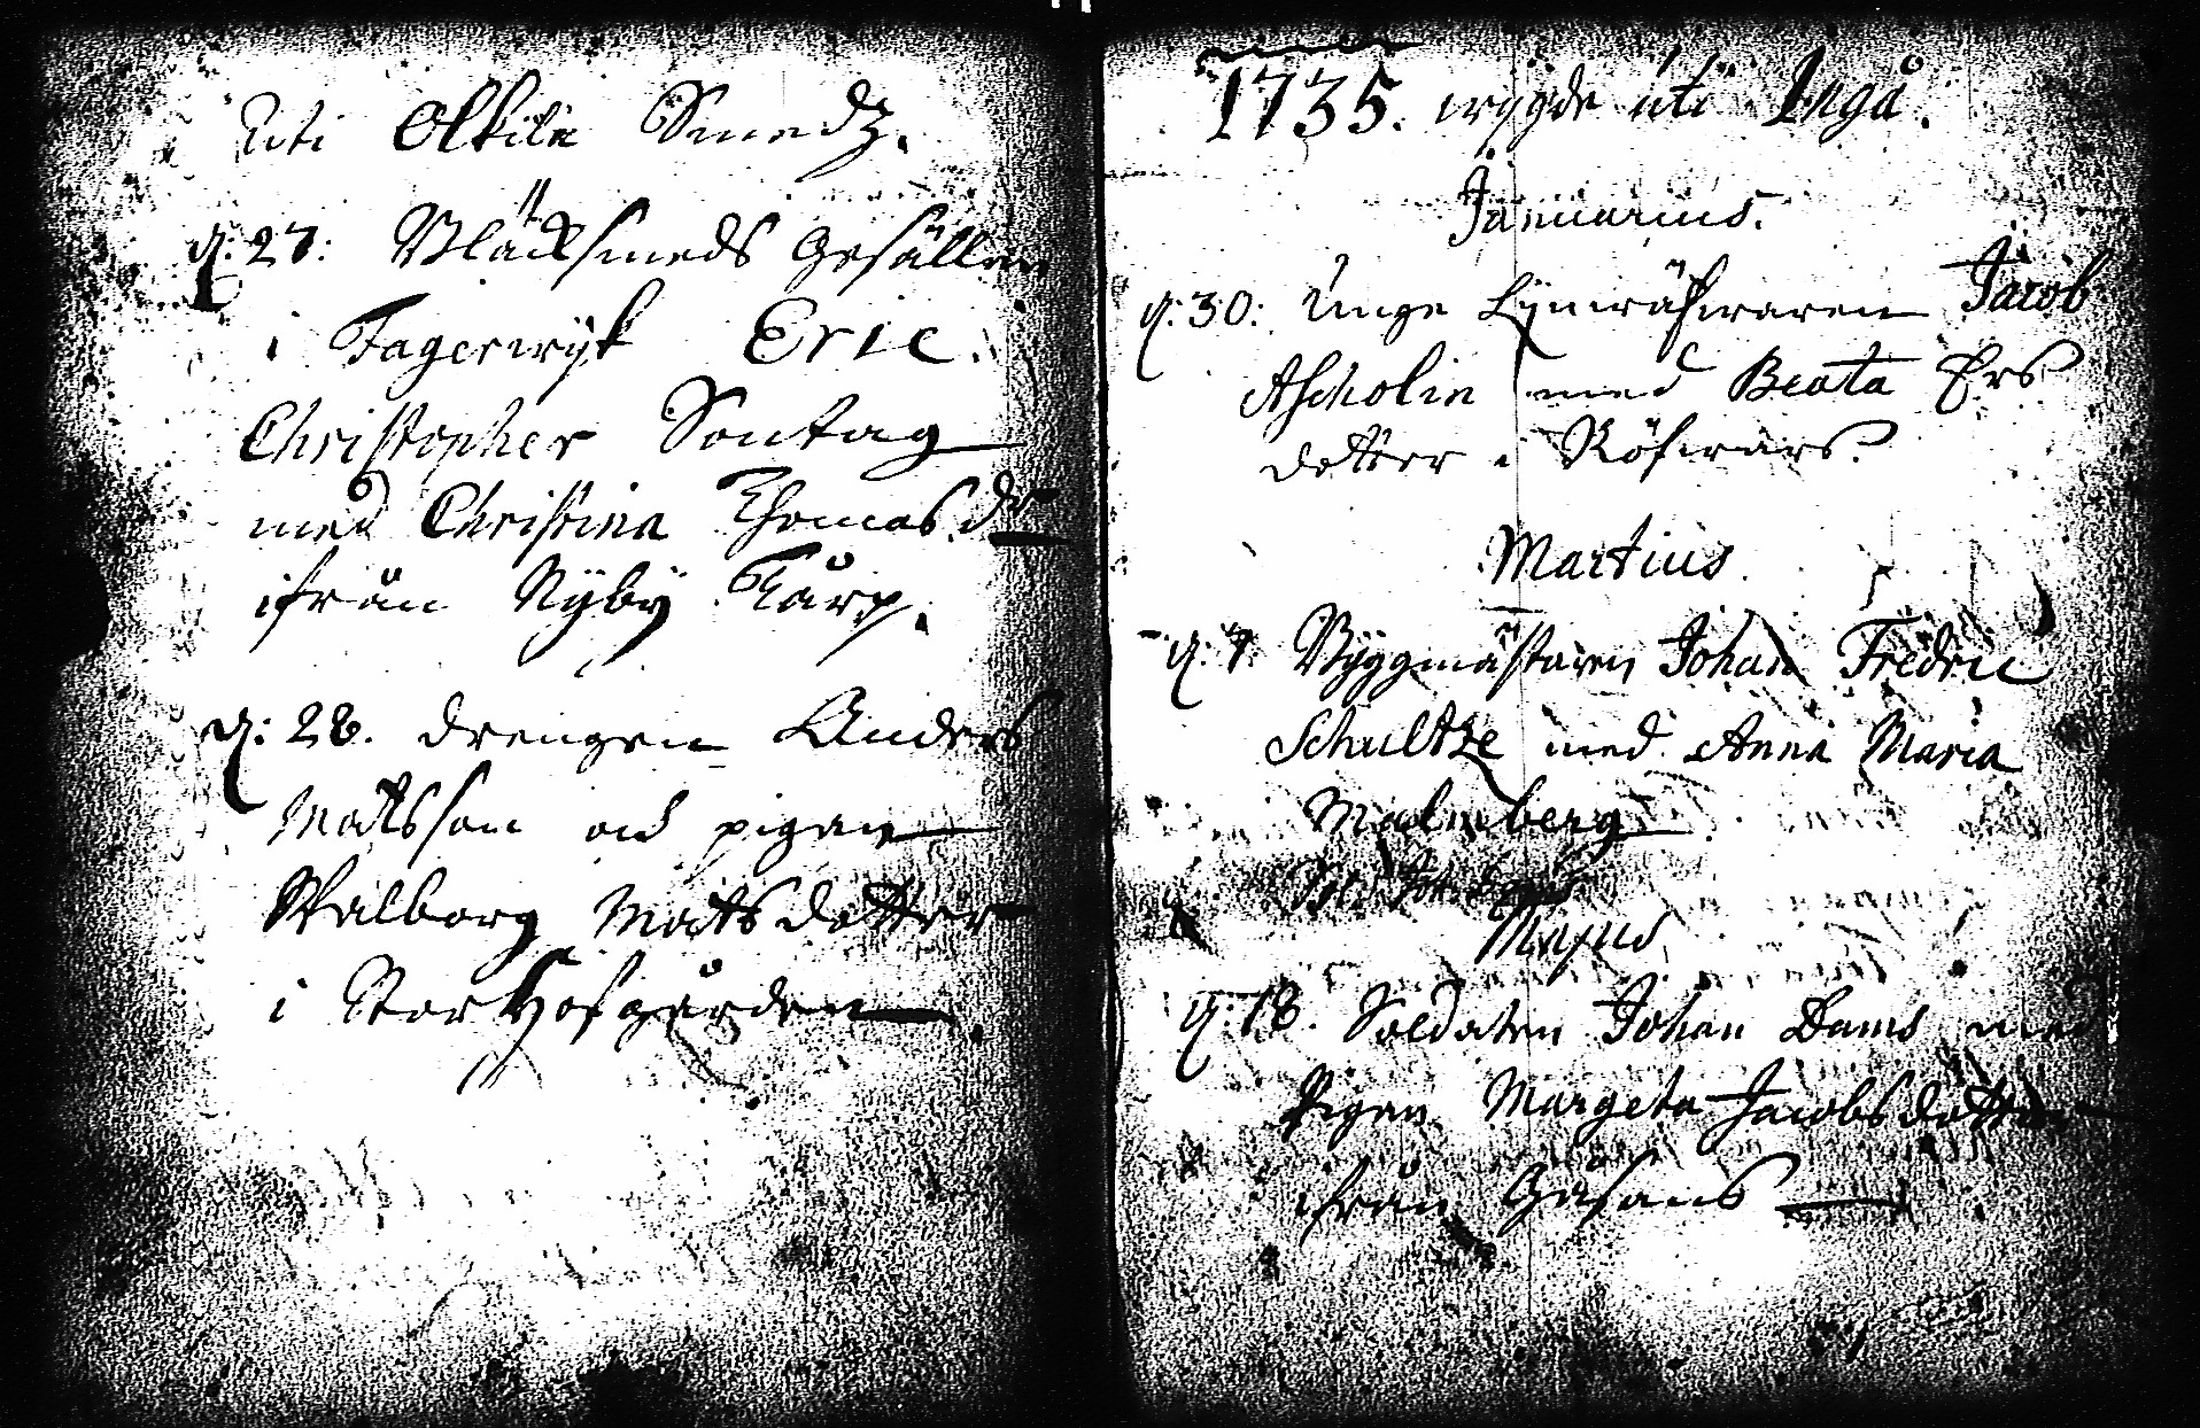 uti Olkila Smedz.
d. 27. Blacksmeds Gesällen
i Fagerwijk Eric.
Christopher Sontag
med Christina Thomas dr
ifrån Nÿbÿ Tårp.
d: 28. drengen Anders
Matsson och pigan
Walborg Matsdotter
i Stor Hofgården
1735. wigde uti Ingå.
Januarius.
d. 30: Unge Linwäfwaren Jacob
Ascholin med Beata Ers
dotter i Röfwars.
Martius
d. 7. Byggmästaren Johan Fredric
Schultze med Anna Maria
Malmberg
Majus
d. 18. Soldaten Johan Dams med
Pigan Margeta Jacobsdotter
ifrån Gåsans